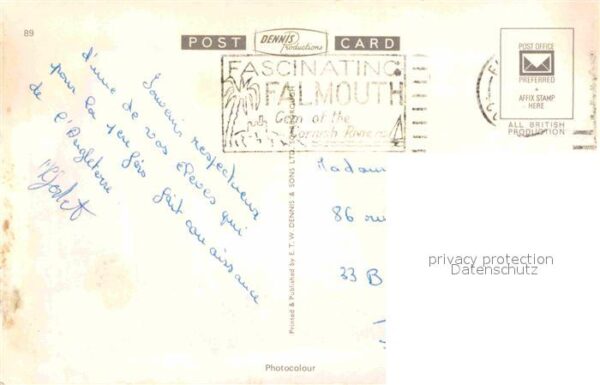 89
POST CARD
DENNIS
Productions
FASCINATING
FALMOUTH
Gem of the
Cornish Riviera
POST OFFICE
PREFERRED
AFFIX STAMP
HERE
ALL BRITISH
PRODUCTION
Souvenir respectueux
d'une de vos élèves qui
pour la 1ère fois fait connaissance
de l'Angleterre
Madam
86 ru
33 B
privacy protection
Datenschutz
Printed & Published by E. T. W. DENNIS & SONS LTD.
Photocolour